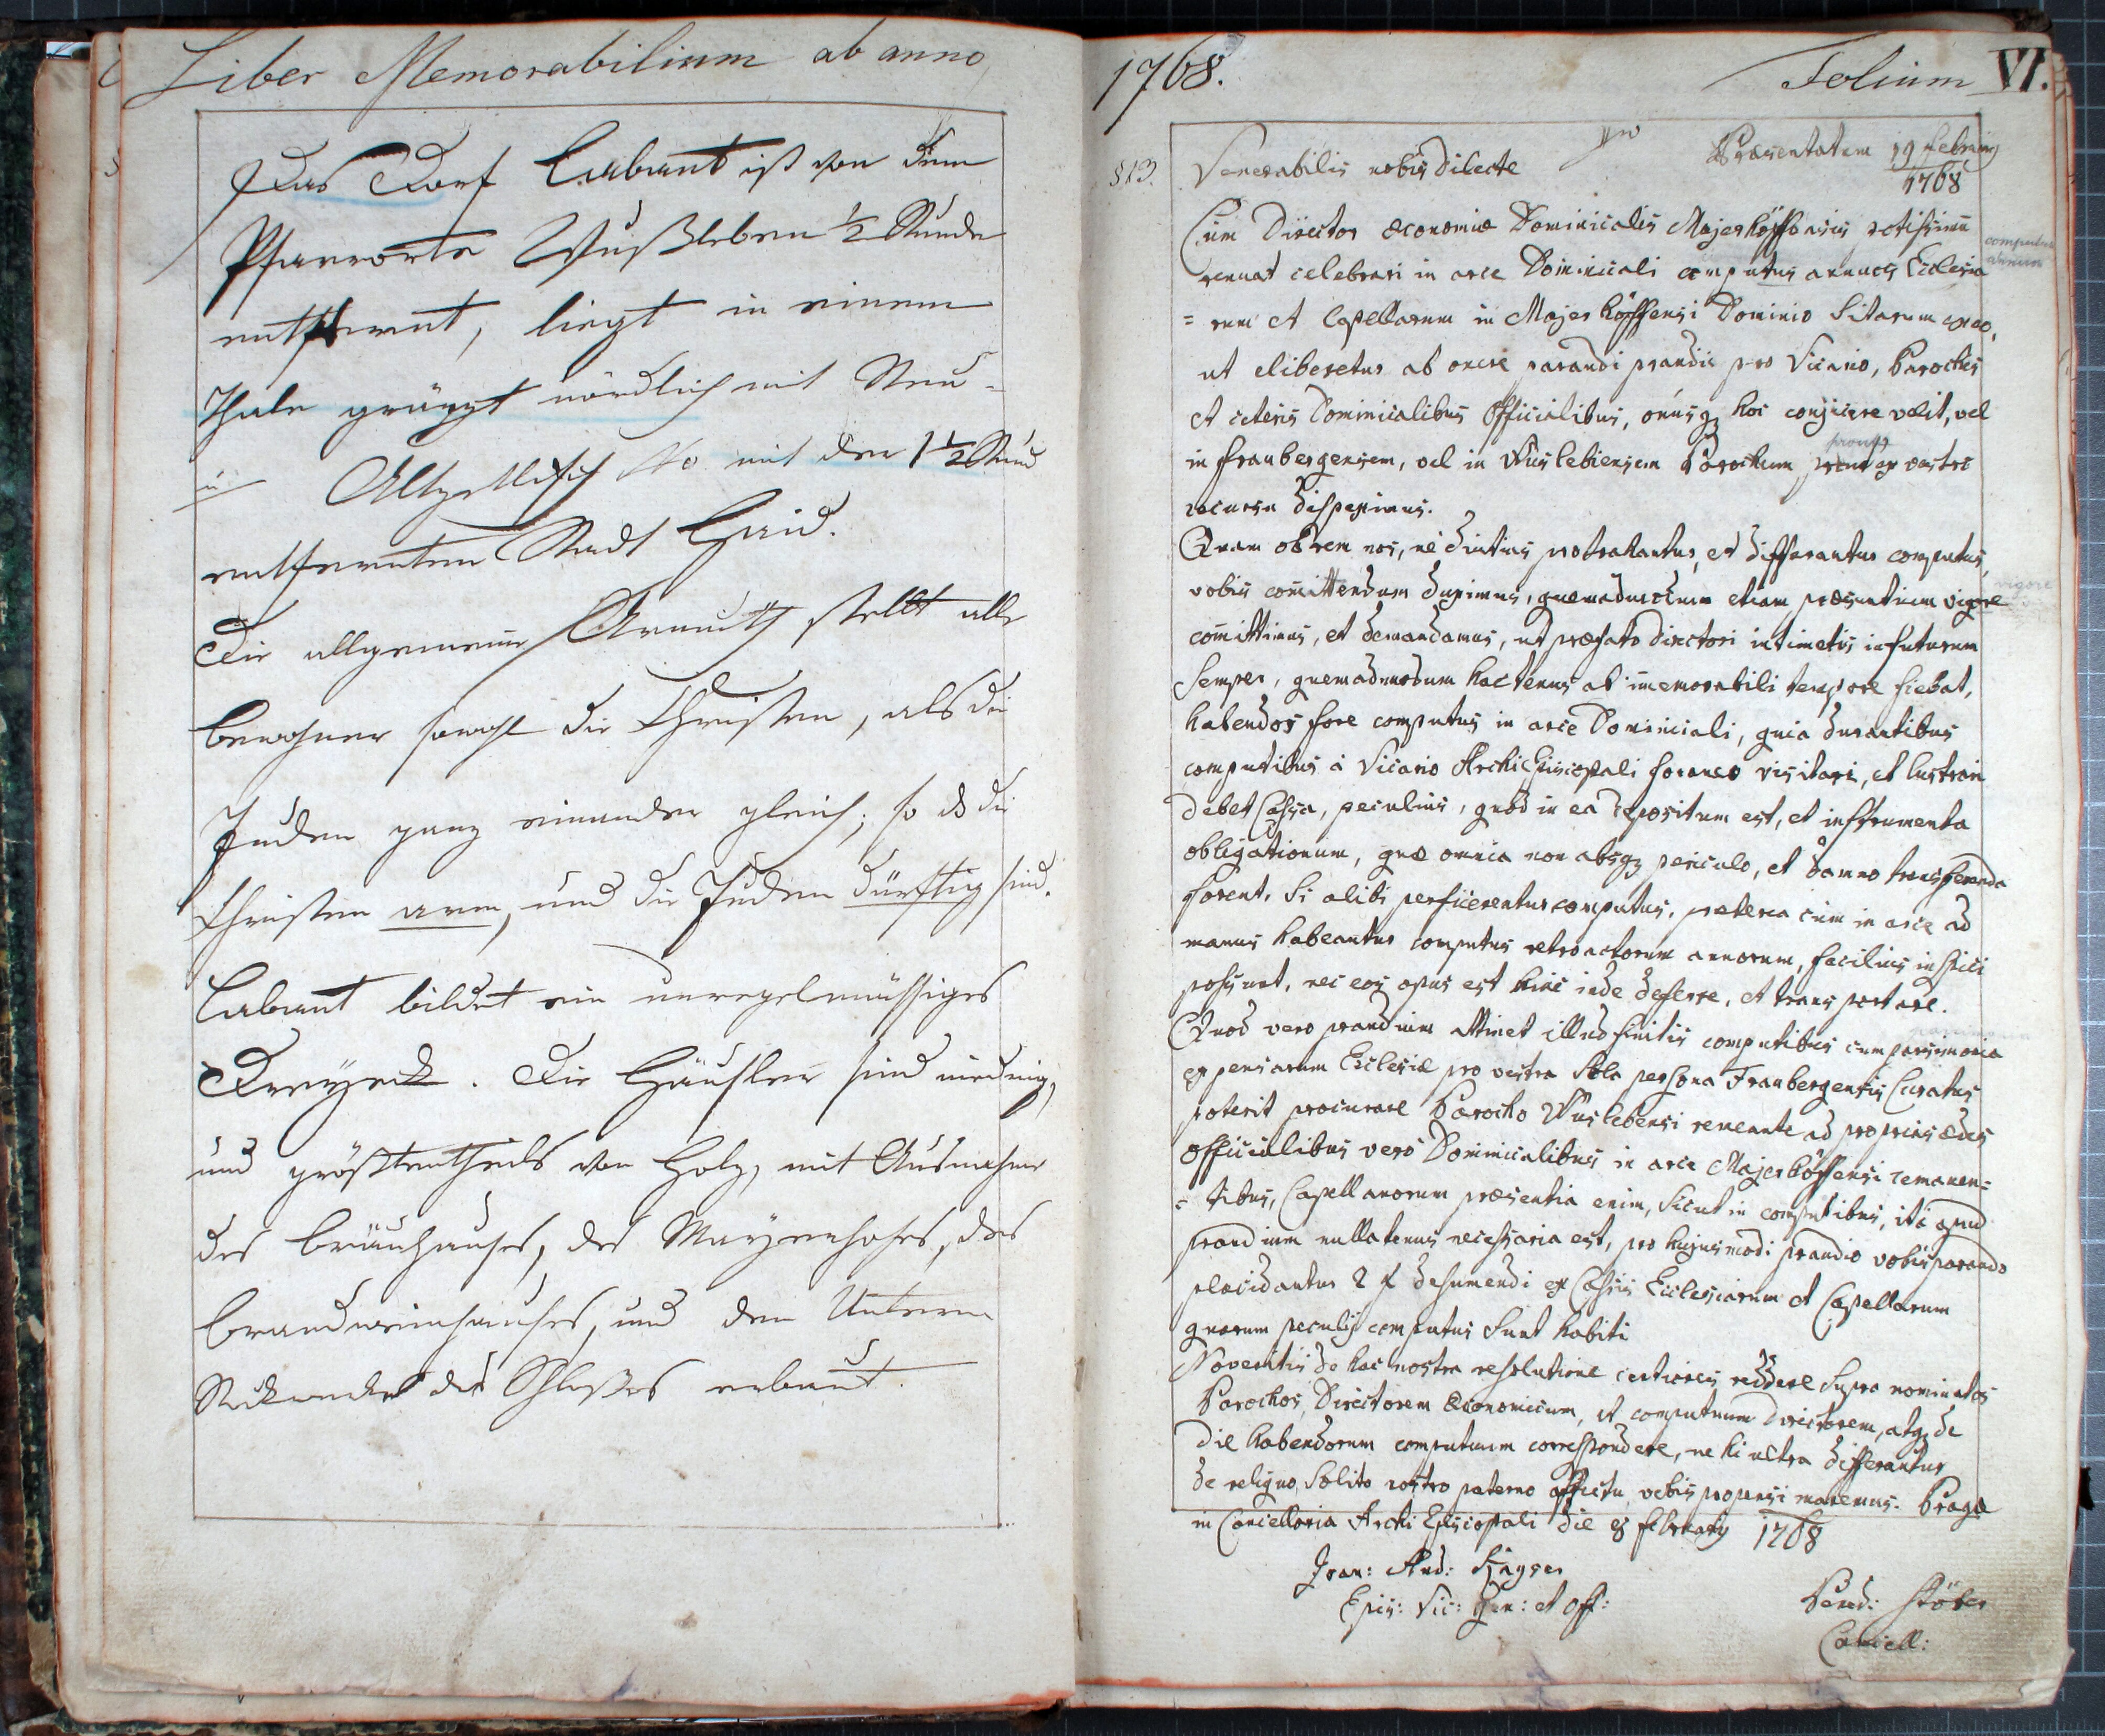 Liber Memorabilium ab anno
Das Dorf Labant ist von dem
Pfarrorte Wußleben 1/2 Stunde
entfernt, liegt in einem
Thale gränzt nördlich mit Neu-
u Altzedlisch No mit der 1 1/2 Stund
entfernten Stadt Haid.
Die allgemeine Armuth stellt alle
Bewohner sowohl die Christen, als die
Juden ganz einander gleich; so ds die
Christen arm, und die Juden dürftig sind.
Labant bildet ein unregelmässiges
Dreyeck. Die Häusler sind niedrig,
und größtentheils von Holz, mit Ausnahme
des Bräuhauses, des Mayerhofes, des
Brandweinhauses, und den Untern
Stockwerke des Schloßes erbaut.
1768. Folium VI.
Præsentatum 19 februarij
1768
§13. Venerabilis nobis dilecte
Cum Director œconomiæ Dominicalis Majerhöffensis
renuat celebrari in arce Dominicali computus annuos Ecclesia
= rum et Capellarum in Majerhöffensi Dominio Sitarum
ut eliberetur ab onere parandi prandii pro Vicario, Parochis
et cæteris Dominicalibus Officialibus, onusq, hoc conjicere velit, vel
in fraubergensem, vel in Wuslebiensem Parochum, prout ex vestri
recursu dispeximus.
Quam obrem nos, ne diutius protrahantur, et differantur computus,
vobis comittendum duximus, quemadmodum etiam præsentium vigore
comittimus, et demandamus, ut præfato directori intimetis in futurum
Semper, quemadmodum hactenus ab immemorabili tempore fiebat,
habendos fore computus in arce Dominicali, quia durantibus
computibus à Vicario ArchiEpiscopali foraneo visitari, et lustrari
debet Cassa, peculium, quod in ea depositum est, et instrumenta
obligationum, quæ omnia non absq, periculo, et damno transferenda
forent, Si alibi perficerentur computus, præterea cum in arce ad
manus habeantur computus retroactorum annorum, facilius inspici
possunt, nec eos opus est hinc inde deferre, et transportare.
Quod vero prandium attinet illud finitis computibus cum parsimonia
expensarum Ecclesiæ pro vestra Sola persona Fraubergensis Curatus
poterit procurare Parocho Wuslebensi remeante ad proprias ædes
officialibus vero Dominicalibus in arce Majerhöffensi remanen=
= tibus, Capellanorum præsentia enim, sicut in computibus, ita apud
prandium nullatenus necessaria est, pro hujusmodi prandio vobis parando
placidantur 2 f desumendi ex Cassis Ecclesiarum et Capellarum
quarum peculij computus sunt habiti
Noveritis de hac nostra resolutione certiores reddere Supra nominatos
Parochos, Directorem Œconomicum, et computuum Directorem, atq, de
die habendorum computuum correspondere, ne hi ultra differantur
de reliquo Solito nostro paterno affectu vobis propensi manemus. Pragæ
in Cancellaria Archi Episcopali die 8 februarij 1768
Joan: And: Kayser
Epis: Vic: Gen: et Off:
Ferd: Stöber
Cancell: